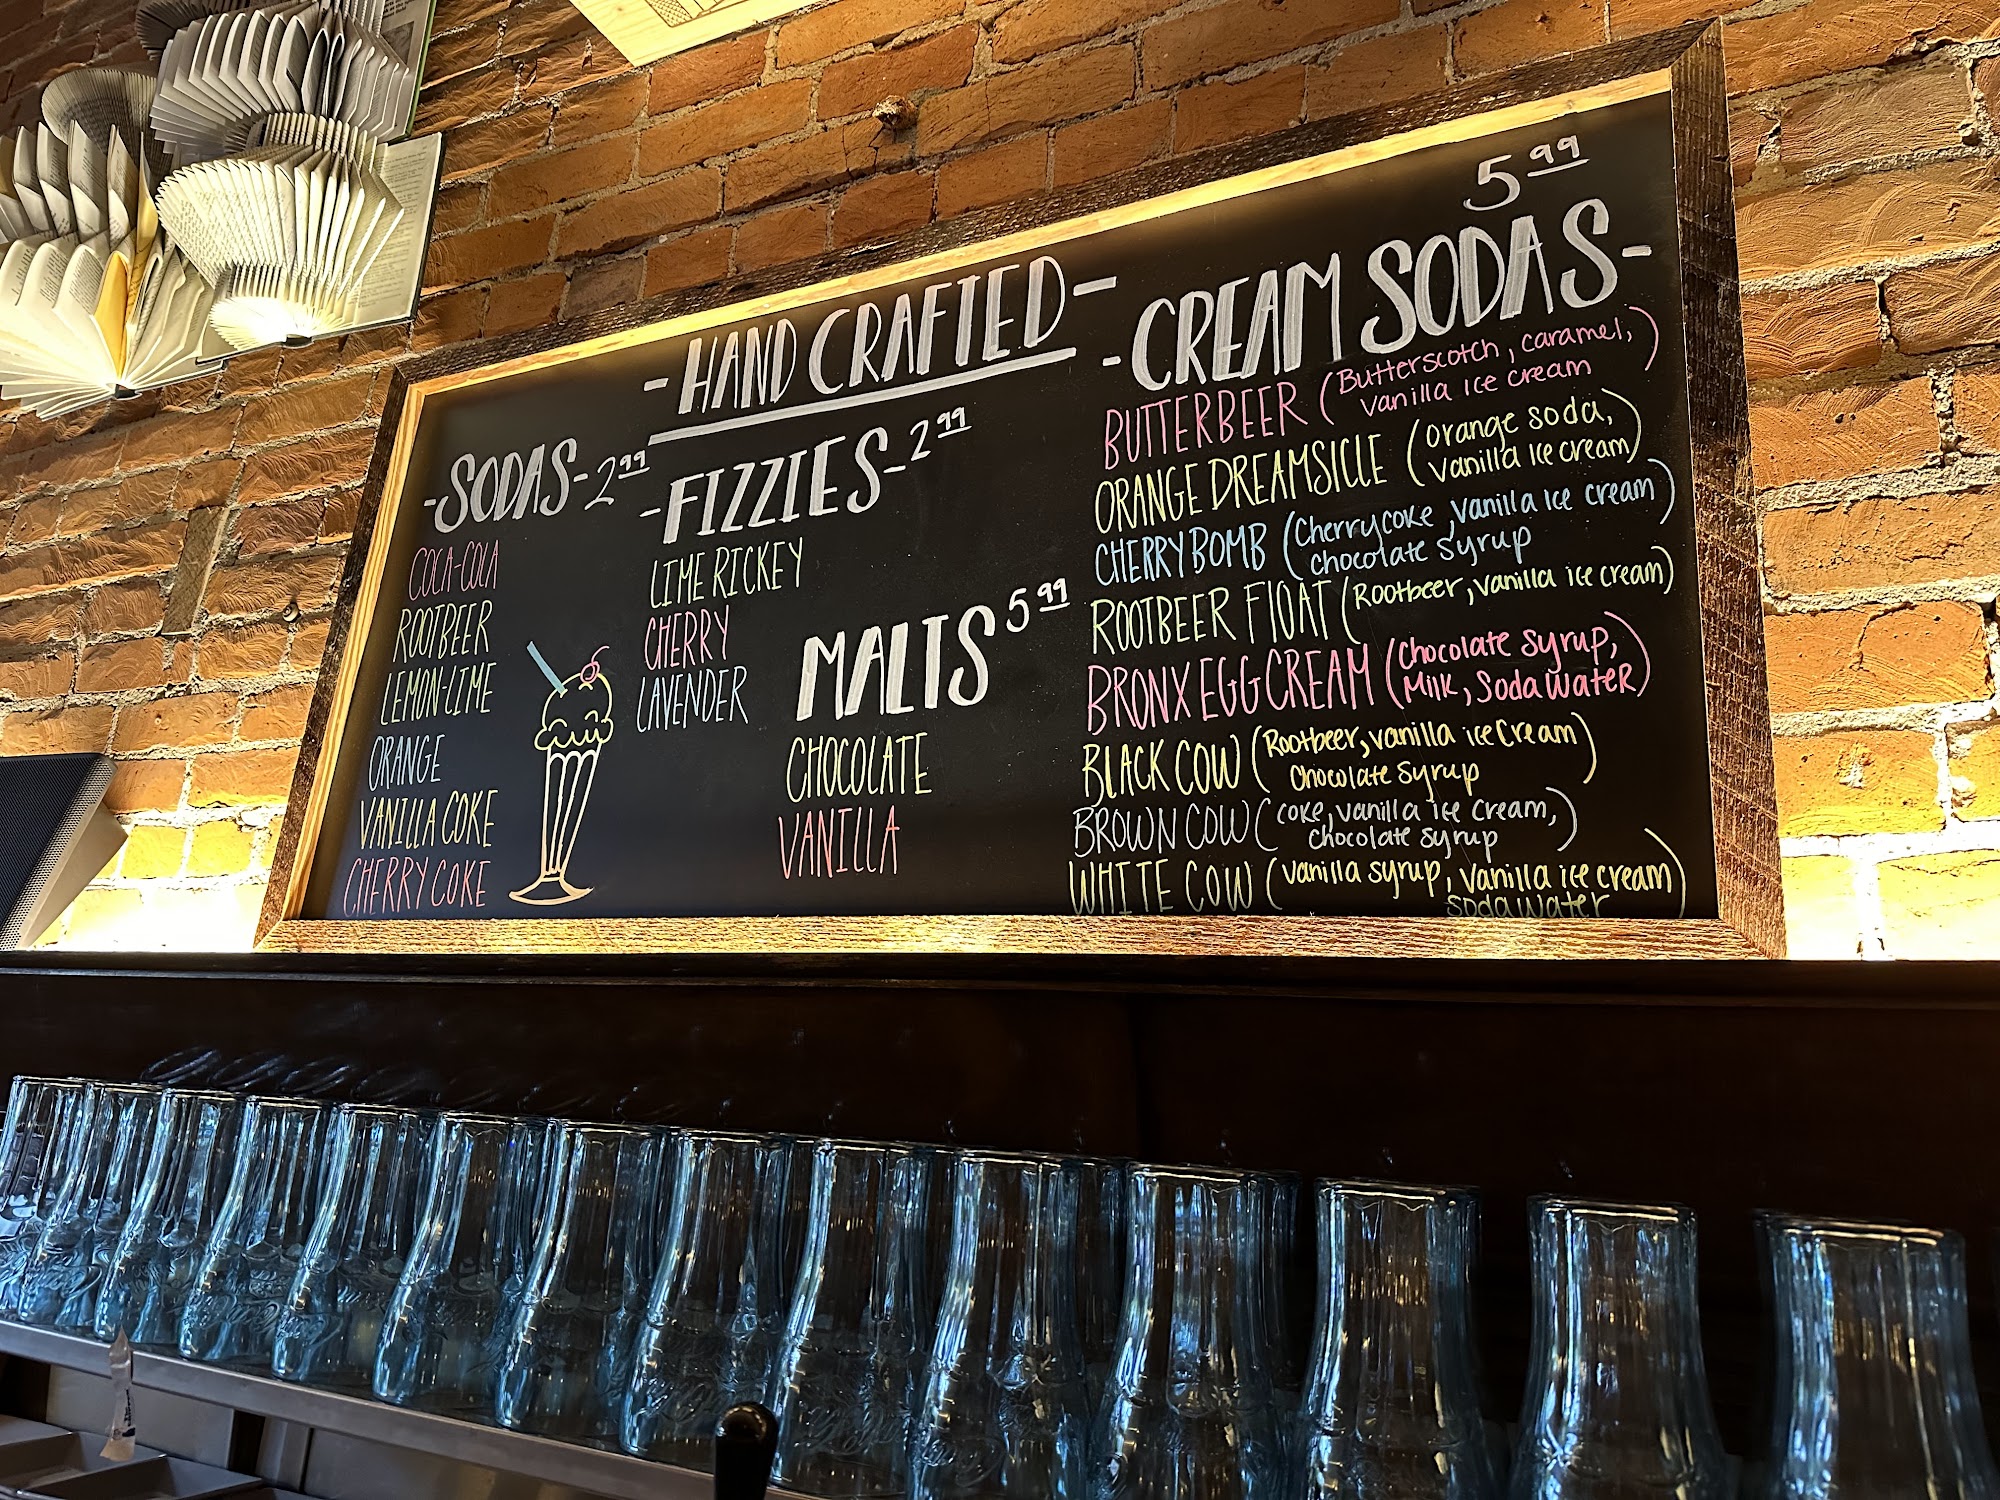 - HAND CRAFTED -
- SODAS - 2.99
COCA-COLA
ROOTBEER
LEMON-LIME
ORANGE
VANILLA COKE
CHERRY COKE
- FIZZIES - 2.99
LIME RICKEY
CHERRY
LAVENDER
MALTS 5.99
CHOCOLATE
VANILLA
5.99
- CREAM SODAS -
BUTTERBEER (Butterscotch, caramel,
vanilla ice cream)
ORANGE DREAMSICLE (orange soda,
vanilla ice cream)
CHERRY BOMB (Cherry coke, vanilla ice cream
chocolate syrup)
ROOTBEER FLOAT (Rootbeer, vanilla ice cream)
BRONX EGG CREAM (Chocolate syrup,
Milk, Soda WateR)
BLACK COW (Rootbeer, vanilla ice cream
Chocolate syrup)
BROWN COW (coke, vanilla ice cream,
chocolate syrup)
WHITE COW (vanilla syrup, vanilla ice cream
soda water)